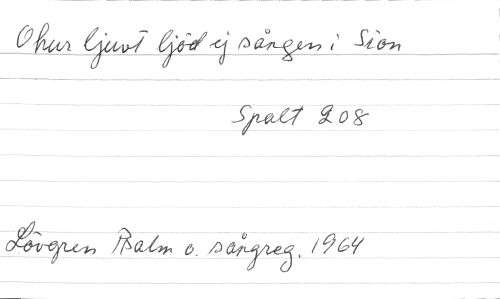 O hur ljuvt ljöd ej sången i Sion
Spalt 208
Lövgren Psalm o. sångreg. 1964